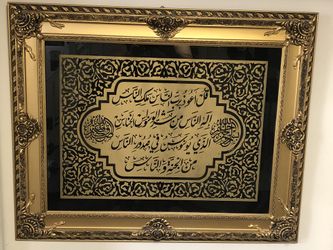 قل أعوذ برب الناس ملك الناس
إله الناس من شر الوسواس الخناس
الذي يوسوس في صدور الناس
من الجنة والناس